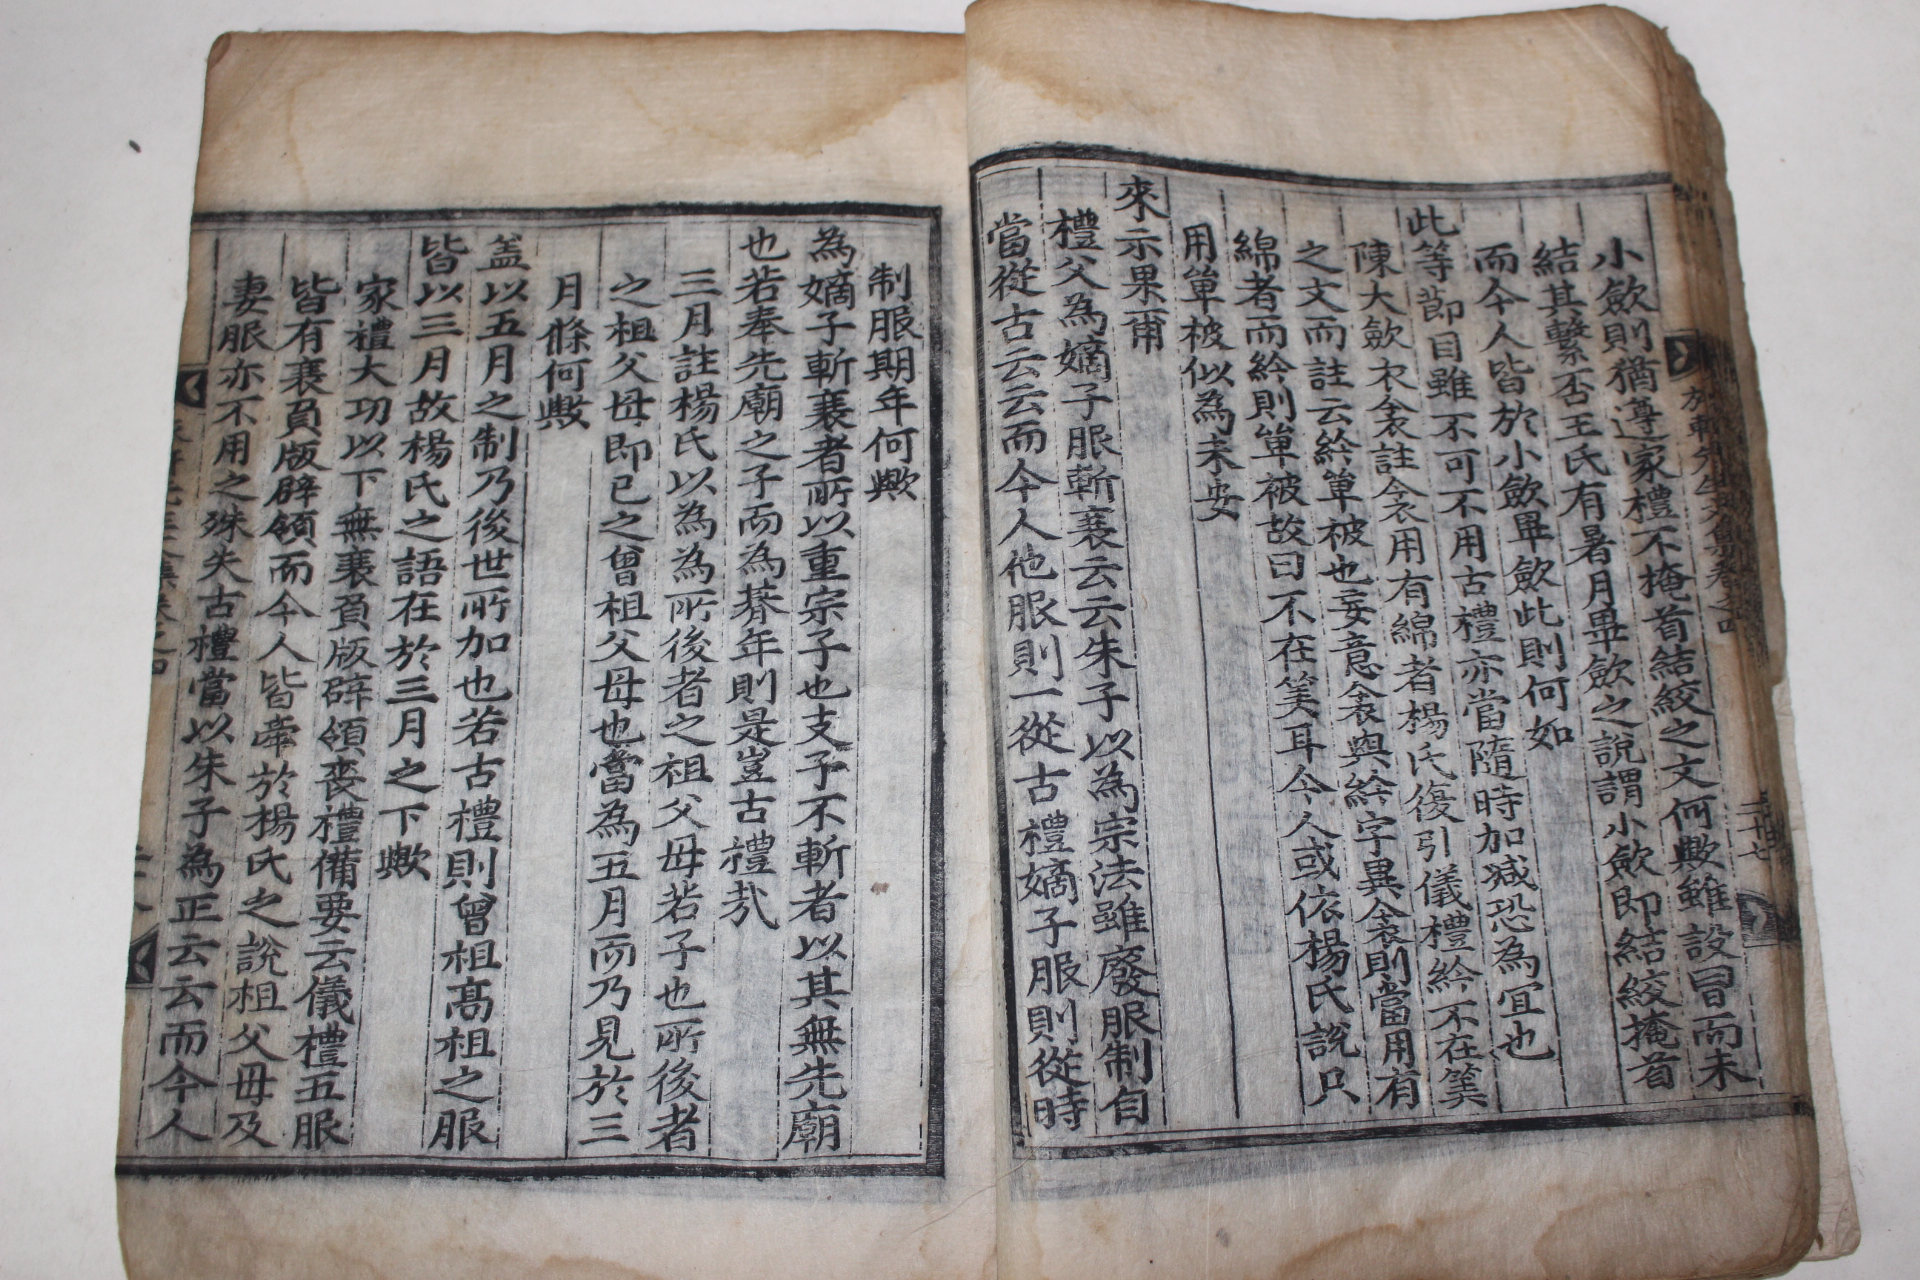 小斂則猶遵家禮不掩首結絞之文何歟雖設冒而未
結其繫否王氏有暑月畢斂之說謂小斂即結絞掩首
而今人皆於小斂畢斂此則何如
此等節目雖不可不用古禮亦當隨時加减恐為宜也
陳大斂衣衾註衾用有綿者楊氏復引儀禮紟不在筭
之文而註云紟單被也妄意衾與紟字異衾則當用有
綿者而紟則單被故曰不在筭耳今人或依楊氏說只
用單被似為未安
來示果爾
禮父為嫡子服斬衰云云朱子以為宗法雖廢服制自
當從古云云而今人他服則一從古禮嫡子服則從時
制服期年何歟
為嫡子斬衰者所以重宗子也支子不斬者以其無先廟
也若奉先廟之子而為朞年則是豈古禮哉
三月註楊氏以為為所後者之祖父母若子也所後者
之祖父母即已之曾祖父母也當為五月而乃見於三
月條何歟
盖以五月之制乃後世所加也若古禮則曾祖高祖之服
皆以三月故楊氏之語在於三月之下歟
家禮大功以下無衰負版辟領喪禮備要云儀禮五服
皆有衰負版辟領而今人皆牽於楊氏之說祖父母及
妻服亦不用之殊失古禮當以朱子為正云云而今人
先生文集卷之四
二十七